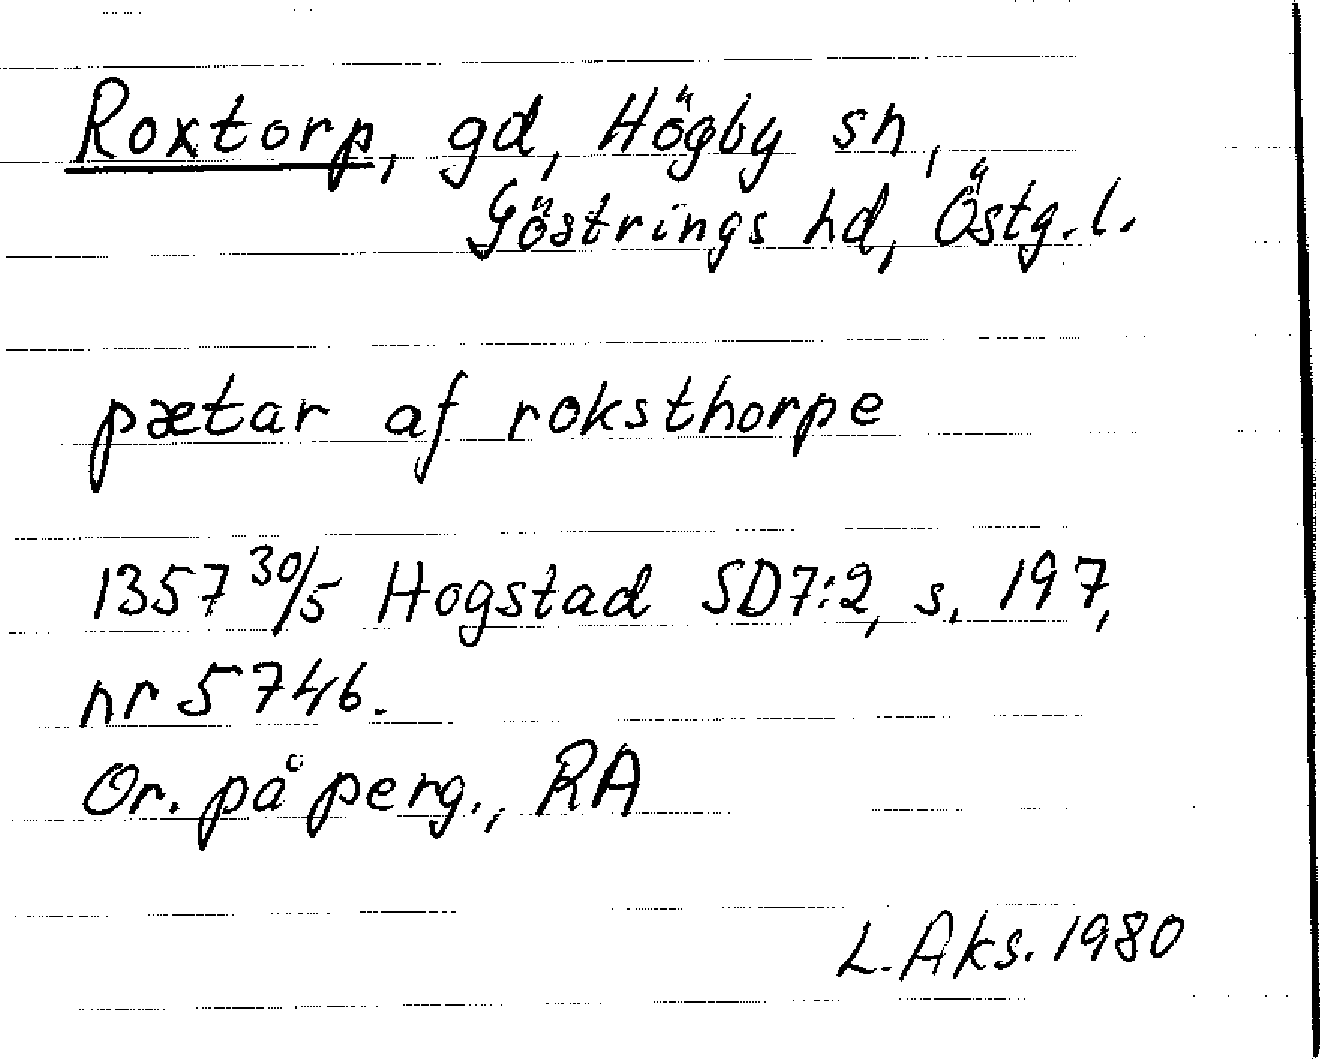 Roxtorp, gd, Högby sn,
Göstrings hd, Östg.l.
pætar af roksthorpe
1357 30/5 Hogstad SD7:2, s. 197,
nr 5746.
Or. på perg., RA
L. Aks. 1980